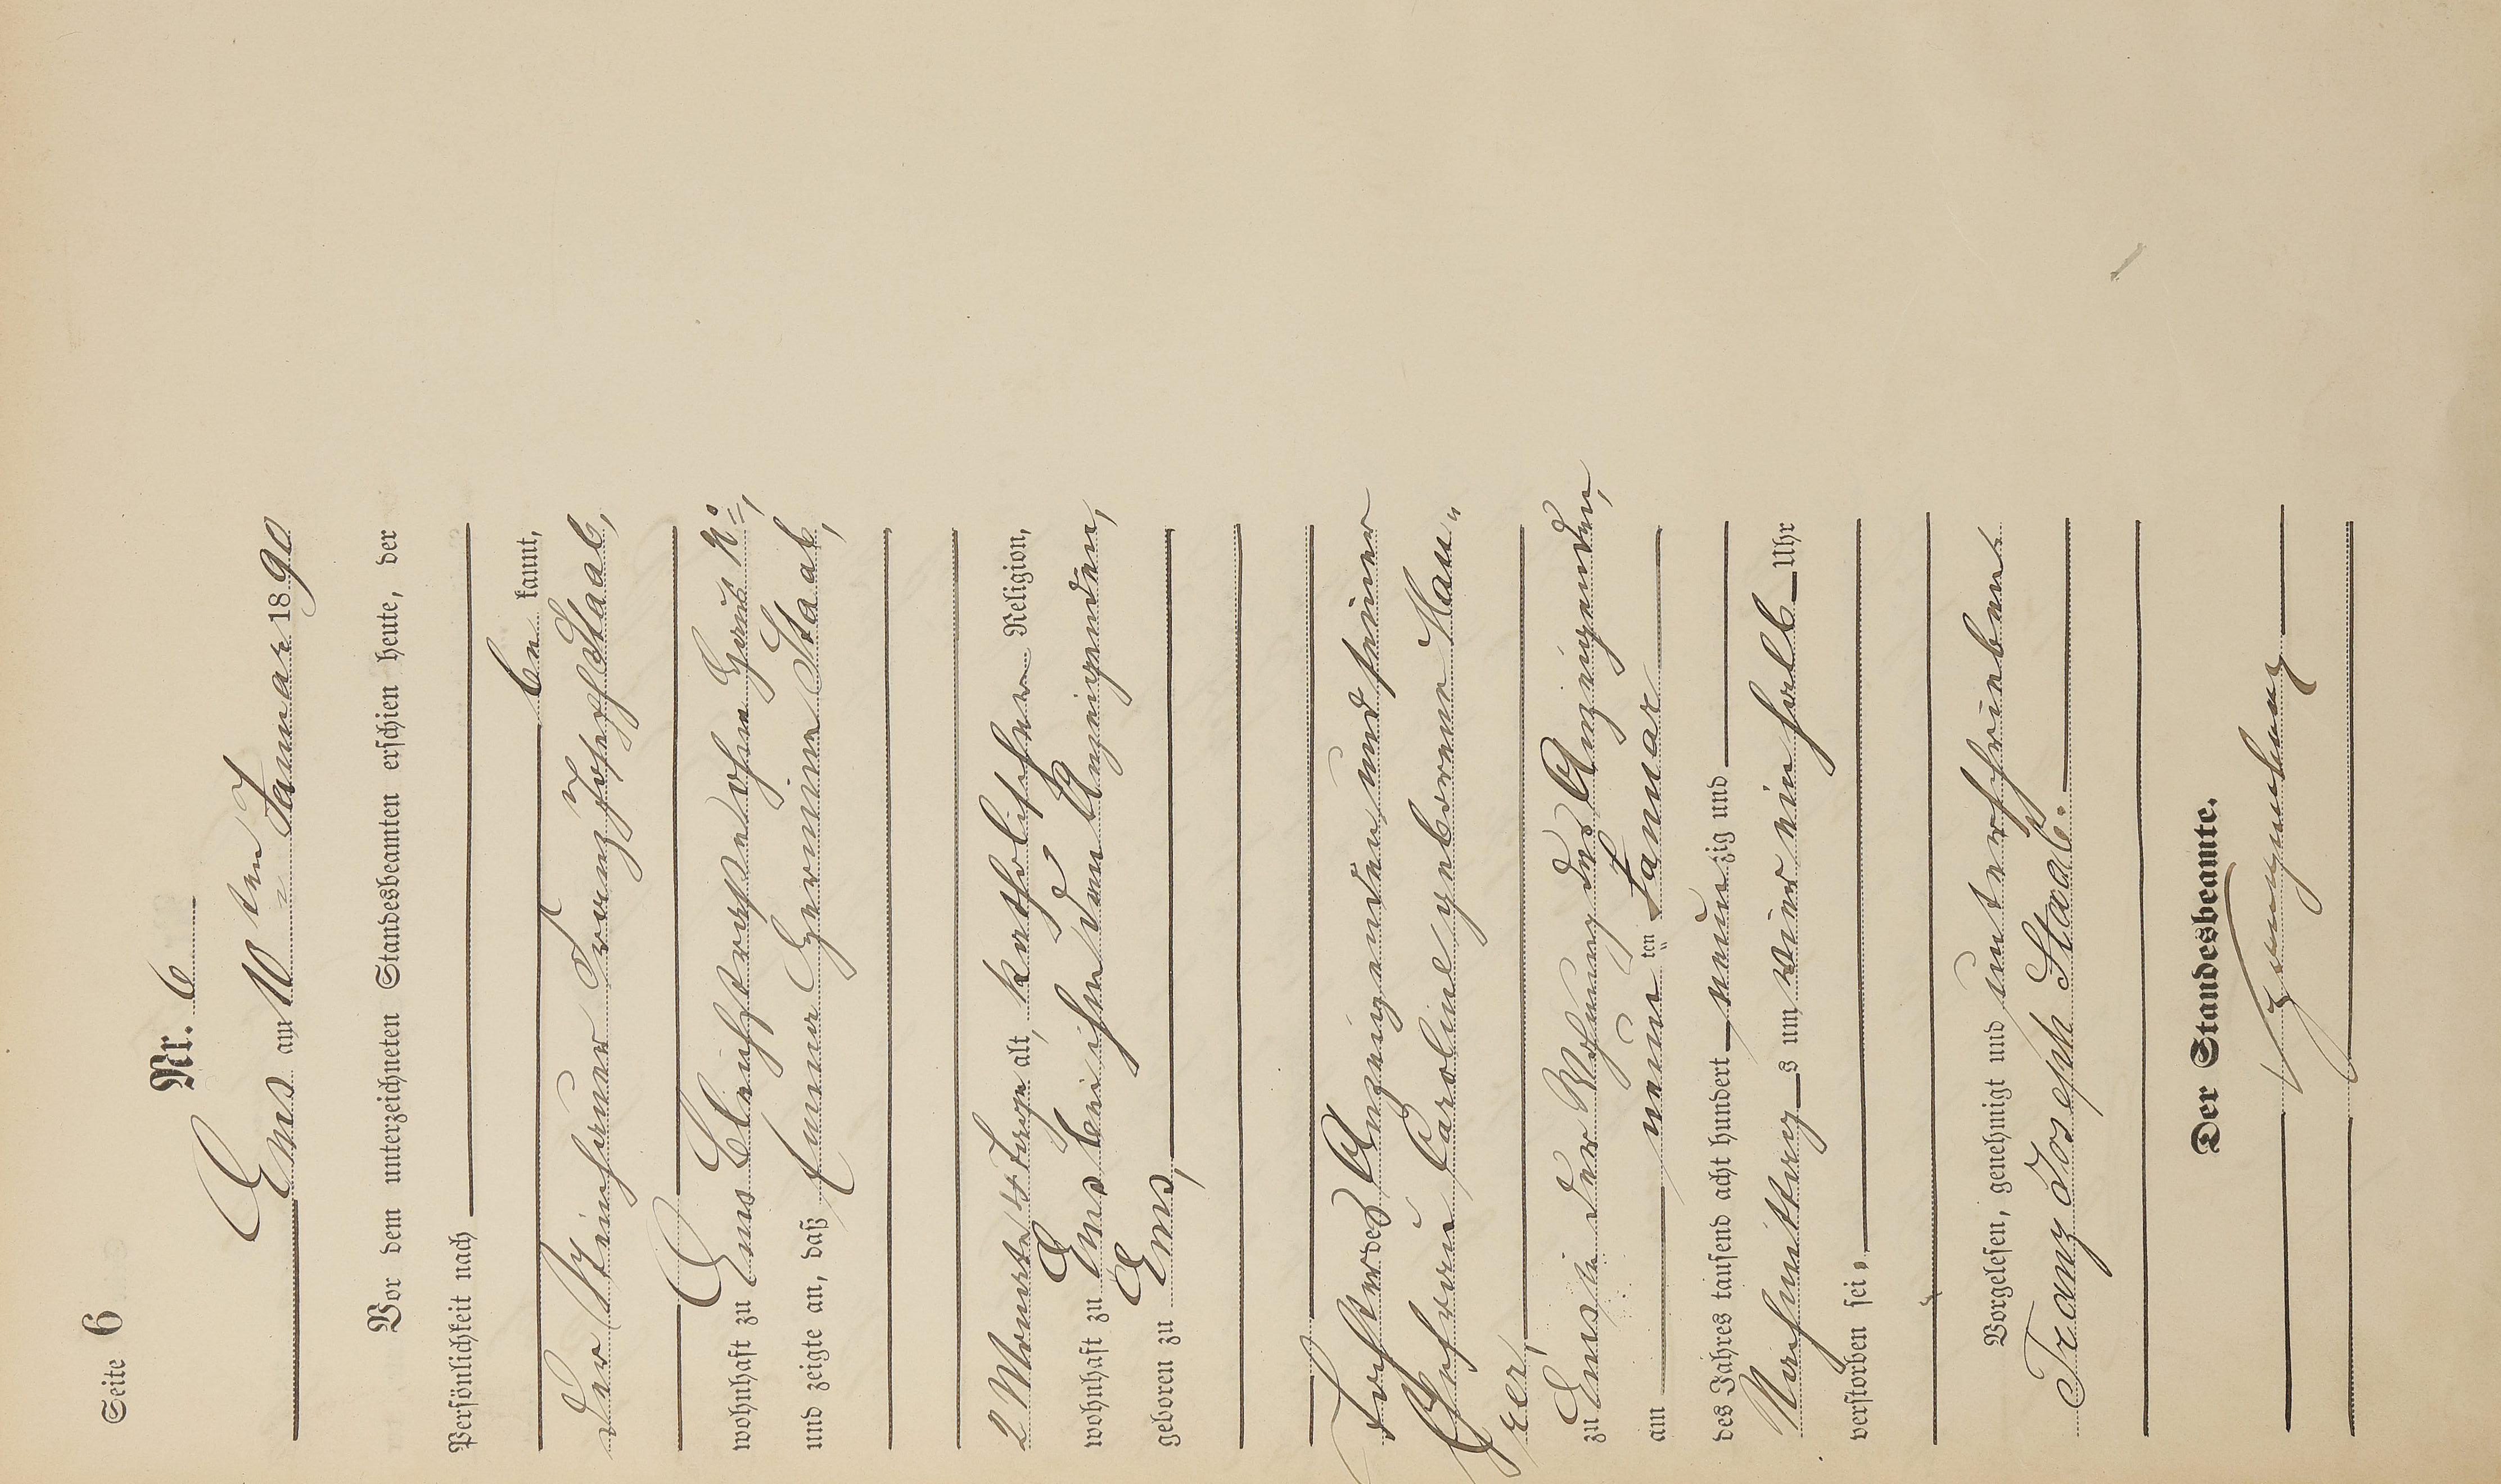 Seite 6
Nr. 6
Ems am 10ten Januar 1890
Vor dem unterzeichneten Standesbeamten erschien heute, der
Persönlichkeit nach
be kannt,
der Steinhauer Franz Joseph Staab,
wohnhaft zu Ems Bleichstraße ohne Haus No,
und zeigte an, daß Emma Hermine Staab,
2 Monate 4 Tage alt, katholischer Religion,
wohnhaft zu Ems bei ihm dem Anzeigenden,
geboren zu Ems,
Tochter des Anzeigenden und seiner
Ehefrau Caroline geborene Kau"
zu Ems in der Wohnung des Anzeigenden,
am neunten Januar
des Jahres tausend acht hundert neunzig und
Nachmittags um vier ein halb Uhr
verstorben sei.
Vorgelesen, genehmigt und unterschrieben
Franz Joseph Staab.
Der Standesbeamte.